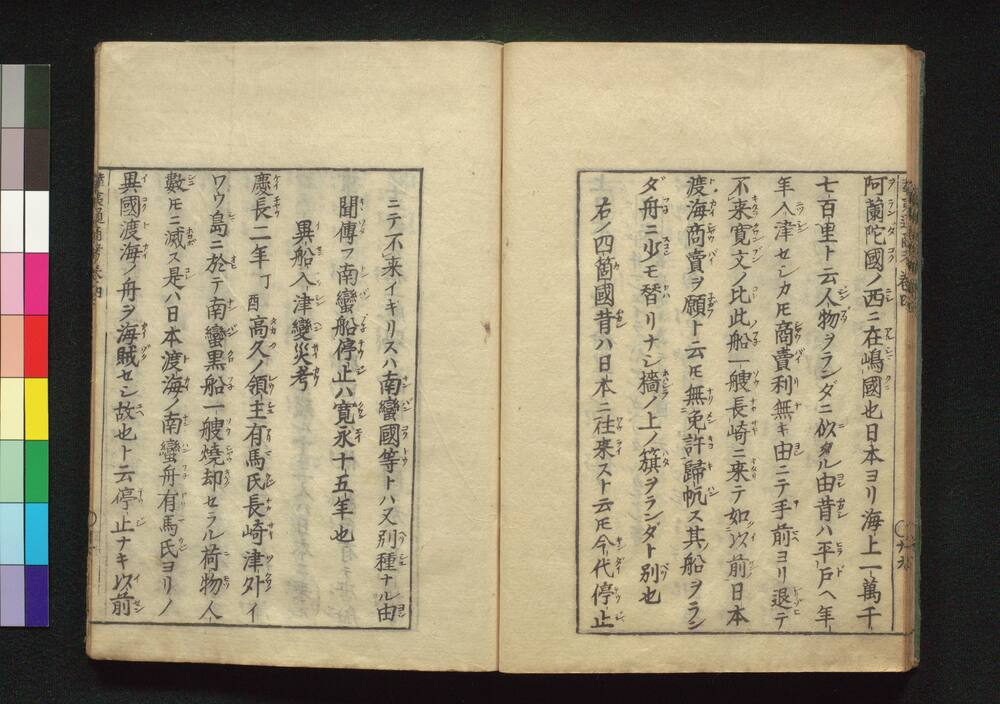 阿蘭陀國ノ西ニ在嶋國也日本ヨリ海上一萬千
七百里ト云人物ヲランダニ似タル由昔ハ平戸ヘ年〻
年入津セシカ𪜈商賣利無キ由ニテ手前ヨリ退テ
不来寛文ノ比此船一艘長崎ニ来テ如以前日本
渡海商賣ヲ願ト云𪜈無免許歸帆ス其船ヲラン
ダ舟ニ少モ替リナシ檣ノ上ノ籏ヲランダト別也
右ノ四箇國昔ハ日本ニ往来スト云𪜈今代停止
ニテ不来イギリスハ南蠻國等トハ又別種ナル由
聞傳フ南蠻船停止ハ寛永十五年也
異船入津變災考
慶長二年丁酉高久ノ領主有馬氏長崎津外イ
ワウ島ニ於テ南蠻黒船一艘燒却セラル荷物人
數𪜈ニ滅ス是ハ日本渡海ノ南蠻舟有馬氏ヨリノ
異國渡海ノ舟ヲ海賊セシ故也ト云停止ナキ以前